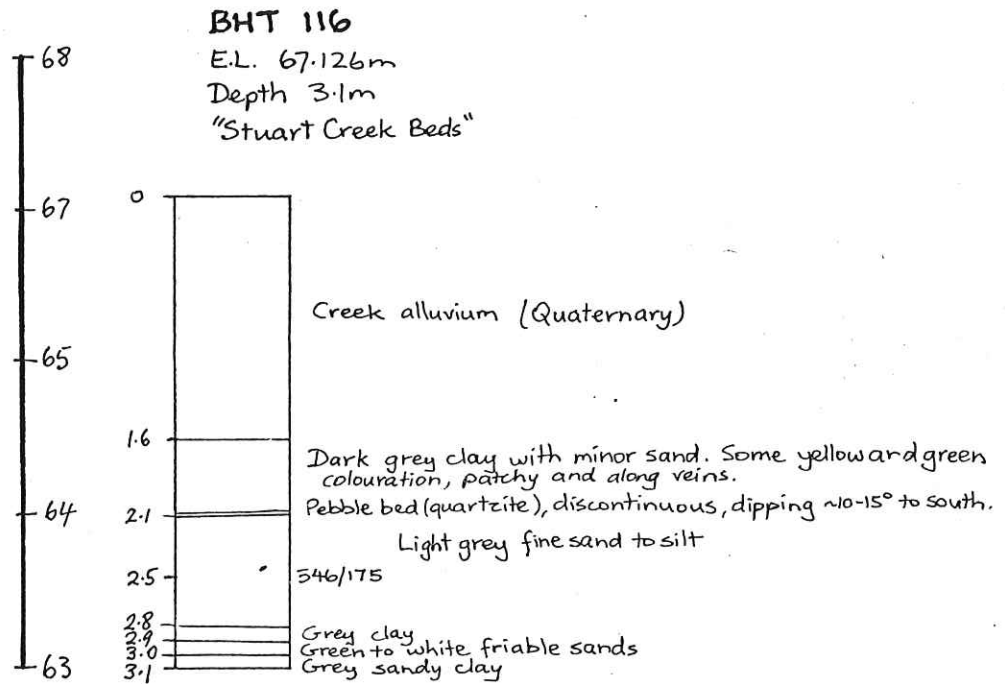 BHT 116
E.L. 67.126m
Depth 3.1m
"Stuart Creek Beds"
68
67
65
64
63
0
1.6
2.1
2.5
2.8
2.9
3.0
3.1
Creek alluvium (Quaternary)
Dark grey clay with minor sand. Some yellow and green
colouration, patchy and along veins.
Pebble bed (quartzite), discontinuous, dipping ~10-15° to south.
Light grey fine sand to silt
546/175
Grey clay
Green to white friable sands
Grey sandy clay